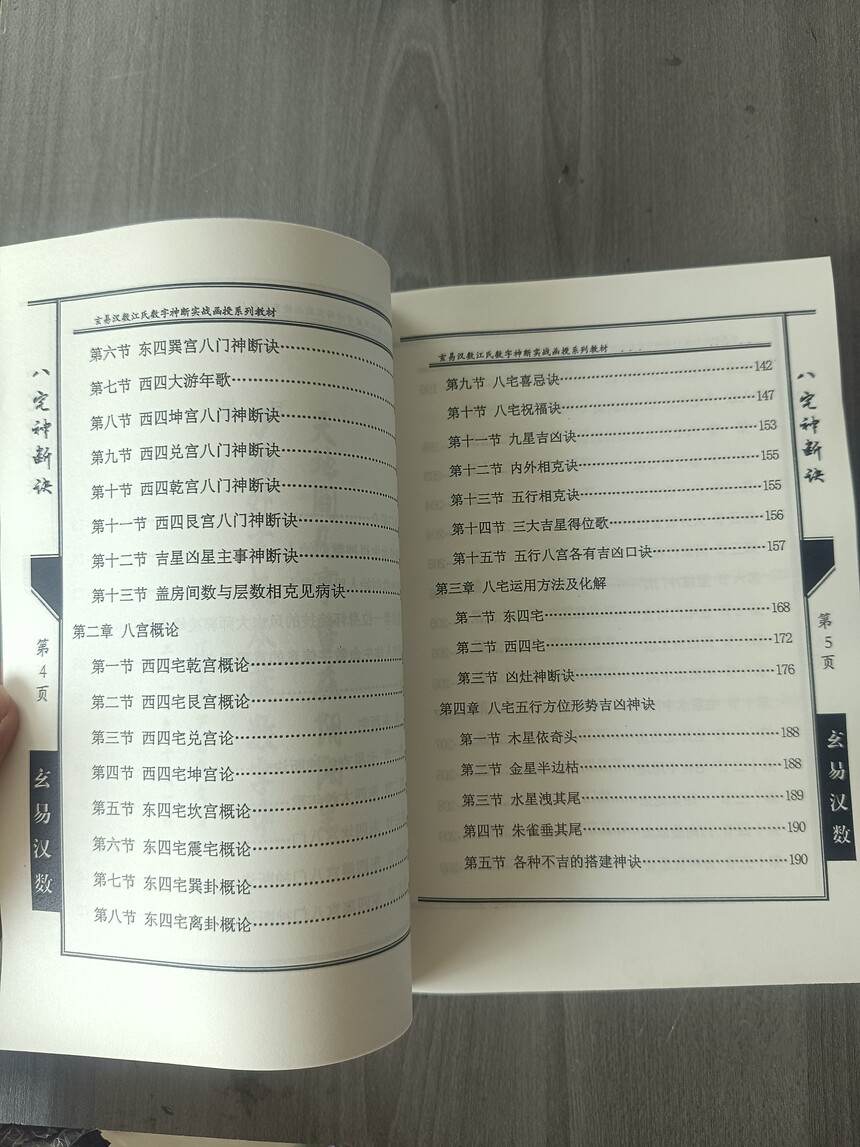 玄易汉数江氏数字神断实战函授系列教材
第六节 东四巽宫八门神断诀
第七节 西四大游年歌
第八节 西四坤宫八门神断诀
第九节 西四兑宫八门神断诀
第十节 西四乾宫八门神断诀
第十一节 西四艮宫八门神断诀
第十二节 吉星凶星主事神断诀
第十三节 盖房间数与层数相克见病诀
第二章 八宫概论
第一节 西四宅乾宫概论
第二节 西四宅艮宫概论
第三节 西四宅兑宫论
第四节 西四宅坤宫论
第五节 东四宅坎宫概论
第六节 东四宅震宅概论
第七节 东四宅巽卦概论
第八节 东四宅离卦概论
八宅神断诀
第4页
玄易汉数
玄易汉数江氏数字神断实战函授系列教材
第九节 八宅喜忌诀 142
第十节 八宅祝福诀 147
第十一节 九星吉凶诀 153
第十二节 内外相克诀 155
第十三节 五行相克诀 155
第十四节 三大吉星得位歌 156
第十五节 五行八宫各有吉凶口诀 157
第三章 八宅运用方法及化解
第一节 东四宅 168
第二节 西四宅 172
第三节 凶灶神断诀 176
第四章 八宅五行方位形势吉凶神诀
第一节 木星依奇头 188
第二节 金星半边枯 188
第三节 水星洩其尾 189
第四节 朱雀垂其尾 190
第五节 各种不吉的搭建神诀 190
八宅神断诀
第5页
玄易汉数